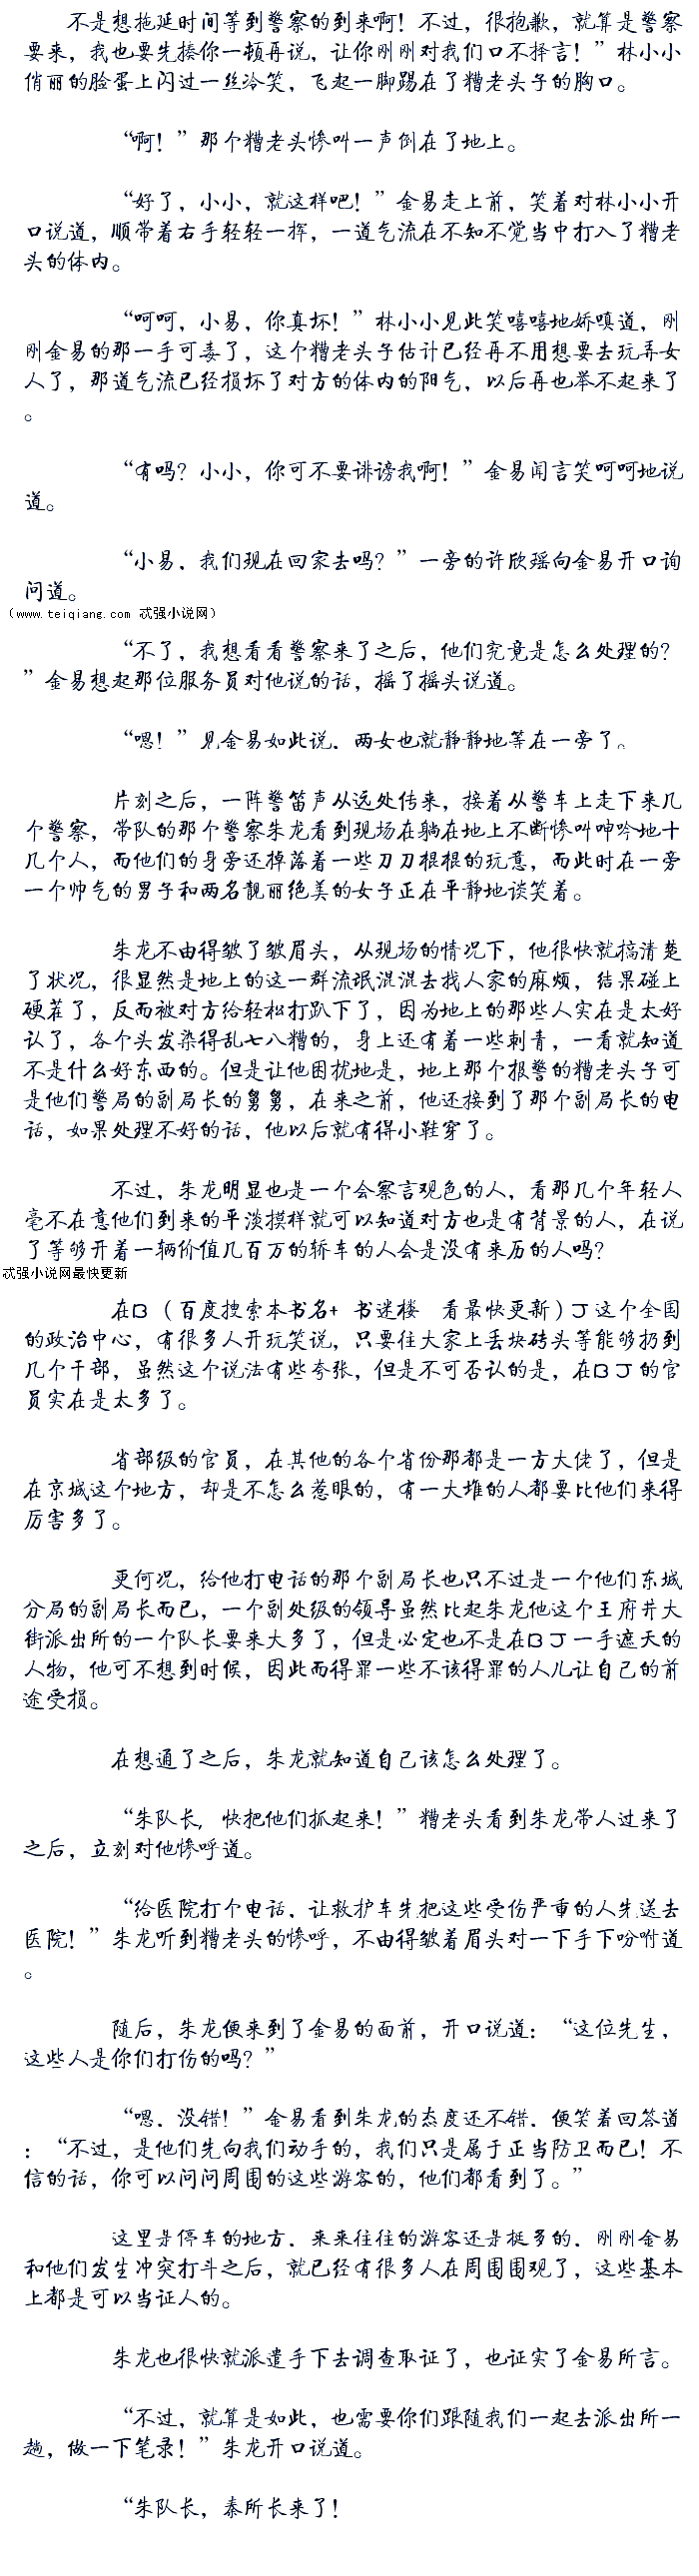 不是想拖延时间等到警察的到来啊！不过，很抱歉，就算是警察
要来，我也要先揍你一顿再说，让你刚刚对我们口不择言！”林小小
俏丽的脸蛋上闪过一丝冷笑，飞起一脚踢在了糟老头子的胸口。
“啊！”那个糟老头惨叫一声倒在了地上。
“好了，小小，就这样吧！”金易走上前，笑着对林小小开
口说道，顺带着右手轻轻一挥，一道气流在不知不觉当中打入了糟老
头的体内。
“呵呵，小易，你真坏！”林小小见此笑嘻嘻地娇嗔道，刚
刚金易的那一手可毒了，这个糟老头子估计已经再不用想要去玩弄女
人了，那道气流已经损坏了对方的体内的阳气，以后再也举不起来了
。
“有吗？小小，你可不要诽谤我啊！”金易闻言笑呵呵地说
道。
“小易，我们现在回家去吗？”一旁的许欣瑶向金易开口询
问道。
（www.teiqiang.com 忒强小说网）
“不了，我想看看警察来了之后，他们究竟是怎么处理的？
”金易想起那位服务员对他说的话，摇了摇头说道。
“嗯！”见金易如此说，两女也就静静地等在一旁了。
片刻之后，一阵警笛声从远处传来，接着从警车上走下来几
个警察，带队的那个警察朱龙看到现场在躺在地上不断惨叫呻吟地十
几个人，而他们的身旁还掉落着一些刀刀棍棍的玩意，而此时在一旁
一个帅气的男子和两名靓丽绝美的女子正在平静地谈笑着。
朱龙不由得皱了皱眉头，从现场的情况下，他很快就搞清楚
了状况，很显然是地上的这一群流氓混混去找人家的麻烦，结果碰上
硬茬了，反而被对方给轻松打趴下了，因为地上的那些人实在是太好
认了，各个头发染得乱七八糟的，身上还有着一些刺青，一看就知道
不是什么好东西的。但是让他困扰地是，地上那个报警的糟老头子可
是他们警局的副局长的舅舅，在来之前，他还接到了那个副局长的电
话，如果处理不好的话，他以后就有得小鞋穿了。
不过，朱龙明显也是一个会察言观色的人，看那几个年轻人
毫不在意他们到来的平淡摸样就可以知道对方也是有背景的人，在说
了等够开着一辆价值几百万的轿车的人会是没有来历的人吗？
忒强小说网最快更新
在B（百度搜索本书名+ 书迷楼 看最快更新）J这个全国
的政治中心，有很多人开玩笑说，只要往大家上丢块砖头等能够扔到
几个干部，虽然这个说法有些夸张，但是不可否认的是，在BJ的官
员实在是太多了。
省部级的官员，在其他的各个省份那都是一方大佬了，但是
在京城这个地方，却是不怎么惹眼的，有一大堆的人都要比他们来得
厉害多了。
更何况，给他打电话的那个副局长也只不过是一个他们东城
分局的副局长而已，一个副处级的领导虽然比起朱龙他这个王府井大
街派出所的一个队长要来大多了，但是必定也不是在BJ一手遮天的
人物，他可不想到时候，因此而得罪一些不该得罪的人儿让自己的前
途受损。
在想通了之后，朱龙就知道自己该怎么处理了。
“朱队长，快把他们抓起来！”糟老头看到朱龙带人过来了
之后，立刻对他惨呼道。
“给医院打个电话，让救护车先把这些受伤严重的人先送去
医院！”朱龙听到糟老头的惨呼，不由得皱着眉头对一下手下吩咐道
。
随后，朱龙便来到了金易的面前，开口说道：“这位先生，
这些人是你们打伤的吗？”
“嗯，没错！”金易看到朱龙的态度还不错，便笑着回答道
：“不过，是他们先向我们动手的，我们只是属于正当防卫而已！不
信的话，你可以问问周围的这些游客的，他们都看到了。”
这里是停车的地方，来来往往的游客还是挺多的，刚刚金易
和他们发生冲突打斗之后，就已经有很多人在周围围观了，这些基本
上都是可以当证人的。
朱龙也很快就派遣手下去调查取证了，也证实了金易所言。
“不过，就算是如此，也需要你们跟随我们一起去派出所一
趟，做一下笔录！”朱龙开口说道。
“朱队长，秦所长来了！